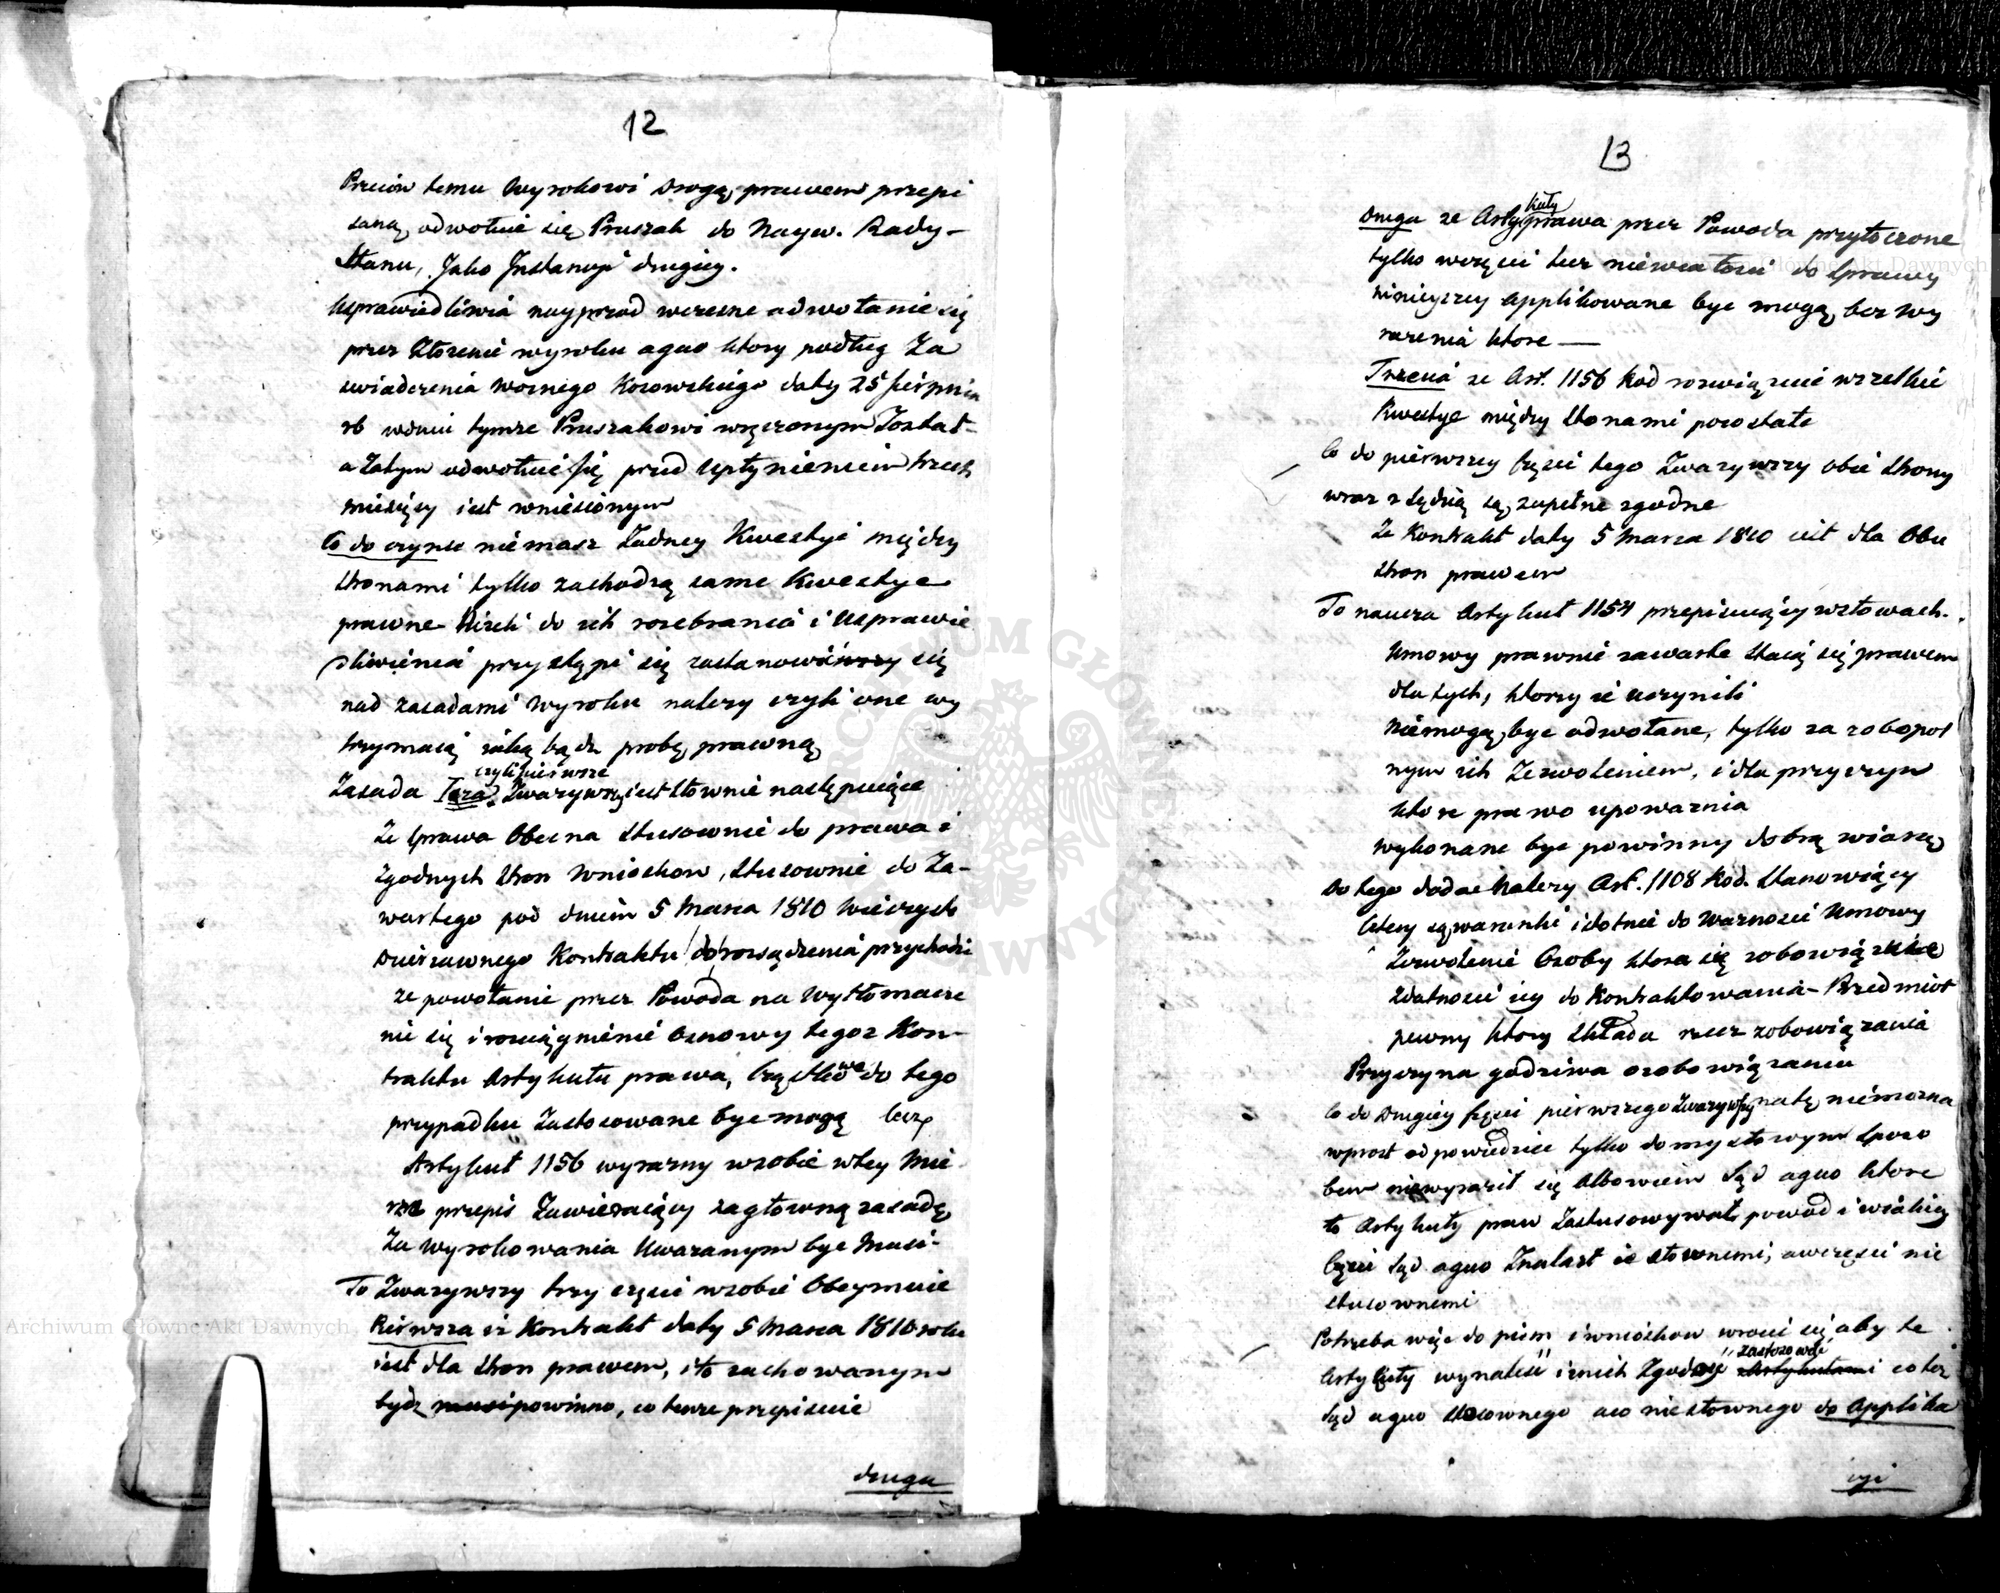 12
Przeciw temu Wyrokowi drogą prawem przepi
saną odwołuie się Pruszak do Nayw. Rady
Stanu, Jako Instancyi drugiey.
Usprawiedliwia nayprzod wczesne odwołanie się
przez złożenie wyroku aquo ktory podług Za
swiadczenia Woznego Kosowskiego daty 25 sierpnia
rb wdniu tymże Pruszakowi wręczonym Został
a Zatym odwołnie się przed upłynieniem trzech
miesięcy iest wniesionym
Co do czynu niemasz Żadney Kwestyi między
Stronami tylko zachodzą same Kwestye
prawne Nizeli do ich rozebrania i Usprawie
dliwienia przystąpi się zastanowić się
nad zasadami Wyroku nalezy czyli one wy
trzymaią iaką bądz probę prawną
czyli pierwsze
Zasada Isza Zwazywszy iest słownie następuiące
Ze Sprawa Obecna Stosownie do prawa i
Zgodnych Stron Wnioskow, Stosownie do Za-
wartego pod dniem 5 Marca 1810 Wieczysto
Dzierzawnego Kontraktu do rosądzenia przychodzi
ze powołanie przez Powoda na Wytłomacze
nie się i rosciągnienie Osnowy tegoz Kon-
traktu Artykułu prawa, Cząstkowe do tego
przypadku Zastosowane bydz mogą lecz
Artykuł 1156 wyrazny wsobie wtey Mie
rze przepis Zawieraiący za głowną zasadę
Za wyrokowania Uwazanym bydz Musi-
To Zwazywszy trzy części wsobie Obeymuie
Pierwsza iz Kontrakt daty 5 Marca 1810 roku
iest dla Stron prawem, i to zachowanym
bydz powinno, co tenze przepisuie
druga
13
kuły
Druga ze Arty prawa przez Powoda przytoczone
tylko wczęsci lecz niewcałosci do Sprawy
ninieyszey applikowane bydz mogą bez wy
razenia ktore —
Trzecia ze Art. 1156 Kod rozwiązuie wszelkie
Kwestye między Stronami powstałe
Co do pierwszey Częsci tego Zwazywszy obie Strony
wraz z Sędzią są zupełne zgodne
Ze Kontrakt daty 5 Marca 1810 iest dla Obu
Stron prawem
To naucza Artykuł 1134 przepisuiący wsłowach.
Umowy prawnie zawarte Staią się prawem
dla tych, ktorzy ie uczynili
niemogą bydz odwołane, tylko za zobopol
nym ich Zezwoleniem, i dla przyczyn
ktore prawo upowaznia
wykonane bydz powinny dobrą wiarą
Do tego dodac Nalezy Art. 1108 Kod. Stanowiący
Cztery są warunki istotnie do Waznosci Umowy
Zezwolenie Osoby ktora się zobowiązuie
Zdatnosci iey do Kontraktowania - Przedmiot
pewny ktory składa rzecz zobowiązania
Przyczyna godziwa ozobowiązaniu
Co do Drugiey Częsci pierwszego Zwazywszy na tę niemozna
wprost odpowiedziec tylko domysłowym Sposo
bem wyraził się Albowiem Sąd aquo ktore
to Artykuły praw Zastosowywał powod i wiakiey
Części Sąd aquo Znalazł ie stosownemi, awczęsci nie
stosownemi
Potrzeba więc do pism i wnioskow wrocic się, aby te
zastosowac
Artykuły wynalesc i co tez
Sąd aquo Stosownego aco niestosownego do Applika
cyi